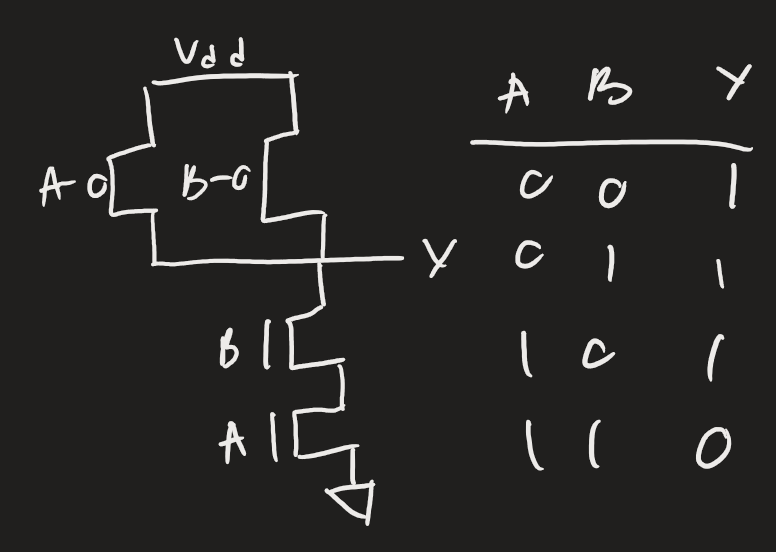 Vdd
A
B
Y
B
A
A B Y
0 0 1
0 1 1
1 0 1
1 1 0